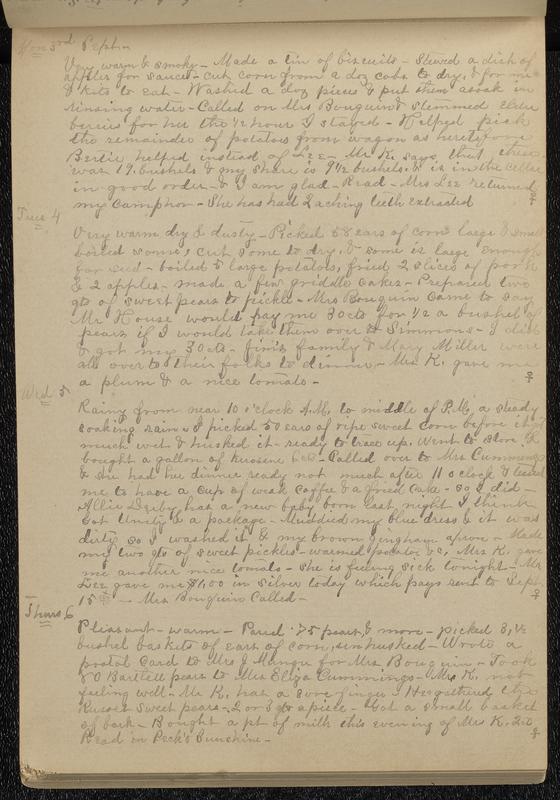 Mon 3rd Sept.
Very warm & smoky - Made a tin of biscuits - Stewed a dish of
apples for sauce - cut corn from a doz cobs to dry, & for me
& Kits to eat - Washed a doz pieces & put them asoak in
rinsing water - Called on Mrs Bouquin & stemmed elder
berries for her the ½ hour I stayed - Helped pick
the remainder of potatoes from wagon as heretofore
Bertie helped instead of Lee - Mr K. says that there
was 19 bushels & my share is 9½ bushels & is in the cellar
in good order - & I am glad - Read - Mrs Lee returned
my camphor - She has had 2 aching teeth extracted
Tues 4
Very warm dry & dusty - Picked 58 ears of corn large & small
boiled some, cut some to dry, & some is large enough
for seed - boiled 5 large potatoes, fried 2 slices of pork
& 2 apples - made a few griddle cakes - Prepared two
qts of sweet pears to pickle - Mrs Bouquin came to say
Mr House would pay me 30cts for ½ a bushel of
pears if I would take them over to Simmons - I did
& got my 30cts - Jim's family & Mary Miller were
all over to their folks to dinner - Mrs K. gave me
a plum & a nice tomato -
Wed 5
Rainy from near 10 o'clock A.M. to middle of P.M. a steady
soaking rain - I picked 50 ears of ripe sweet corn before it got
much wet & husked it - ready to trace up. Went to store &
bought a gallon of kerosene - Called over to Mrs Cummings
& she had her dinner ready not much after 11 o'clock &
me to have a cup of weak coffee & a fried cake - so I did
Allie Derby has a new baby born last night I think
Got Unity & a package - Muddied my blue dress & it was
dirty so I washed it & my brown gingham apron - Made
my two qts of sweet pickles - warmed potatoes &c, Mrs K. gave
me another nice tomato - she is feeling sick tonight - Mr
Lee gave me $4,00 in silver today which pays rent to Sept.
15 - Mrs Bouquin Called -
Thurs 6
Pleasant - warm - Pared 75 pears, & more - picked 3,½
bushel baskets of ears of corn, unhusked - Wrote a
postal card to Mrs J for Mrs Bouquin - Took
50 Bartlett pears to Mrs Eliza Cummings - Mrs K. not
feeling well - Mr K. has a sore finger - He gathered the
Russet Sweet pears - 2 or 3 qts apiece - Got a small basket
of bark - Bought a pt of milk this evening of Mrs K. 2cts
Read in Peck's Sunshine -